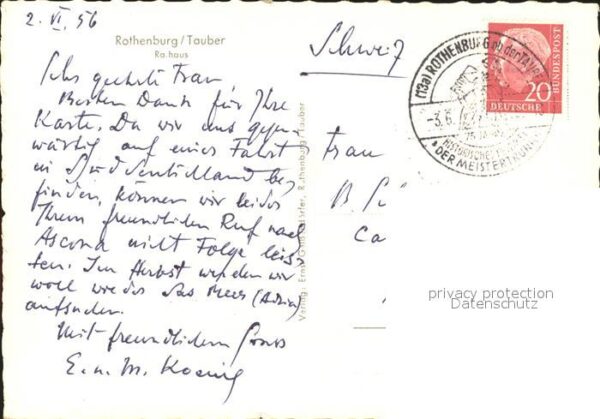 2. VI. 56
Rothenburg/Tauber
Rathaus
Schweiz
Sehr geehrte Frau
Besten Dank für Ihre
Karte. Da wir uns gegen
wärtig auf einer Fahrt
in Süddeutschland be
finden, können wir leider
Ihrem freundlichen Ruf nach
Ascona nicht Folge leis
ten. Im Herbst werden wir
wohl wieder das Meer (Adria)
aufsuchen.
Mit freundlichem Gruss
E. u. M. Koenig
Verlag: Ernst
Rothenburg/Tauber
Frau
B.
Ca
(13a) ROTHENBURG ob der TAUBER
-3.6.
DER MEISTERTRUNK
20
DEUTSCHE
BUNDESPOST
privacy protection
Datenschutz